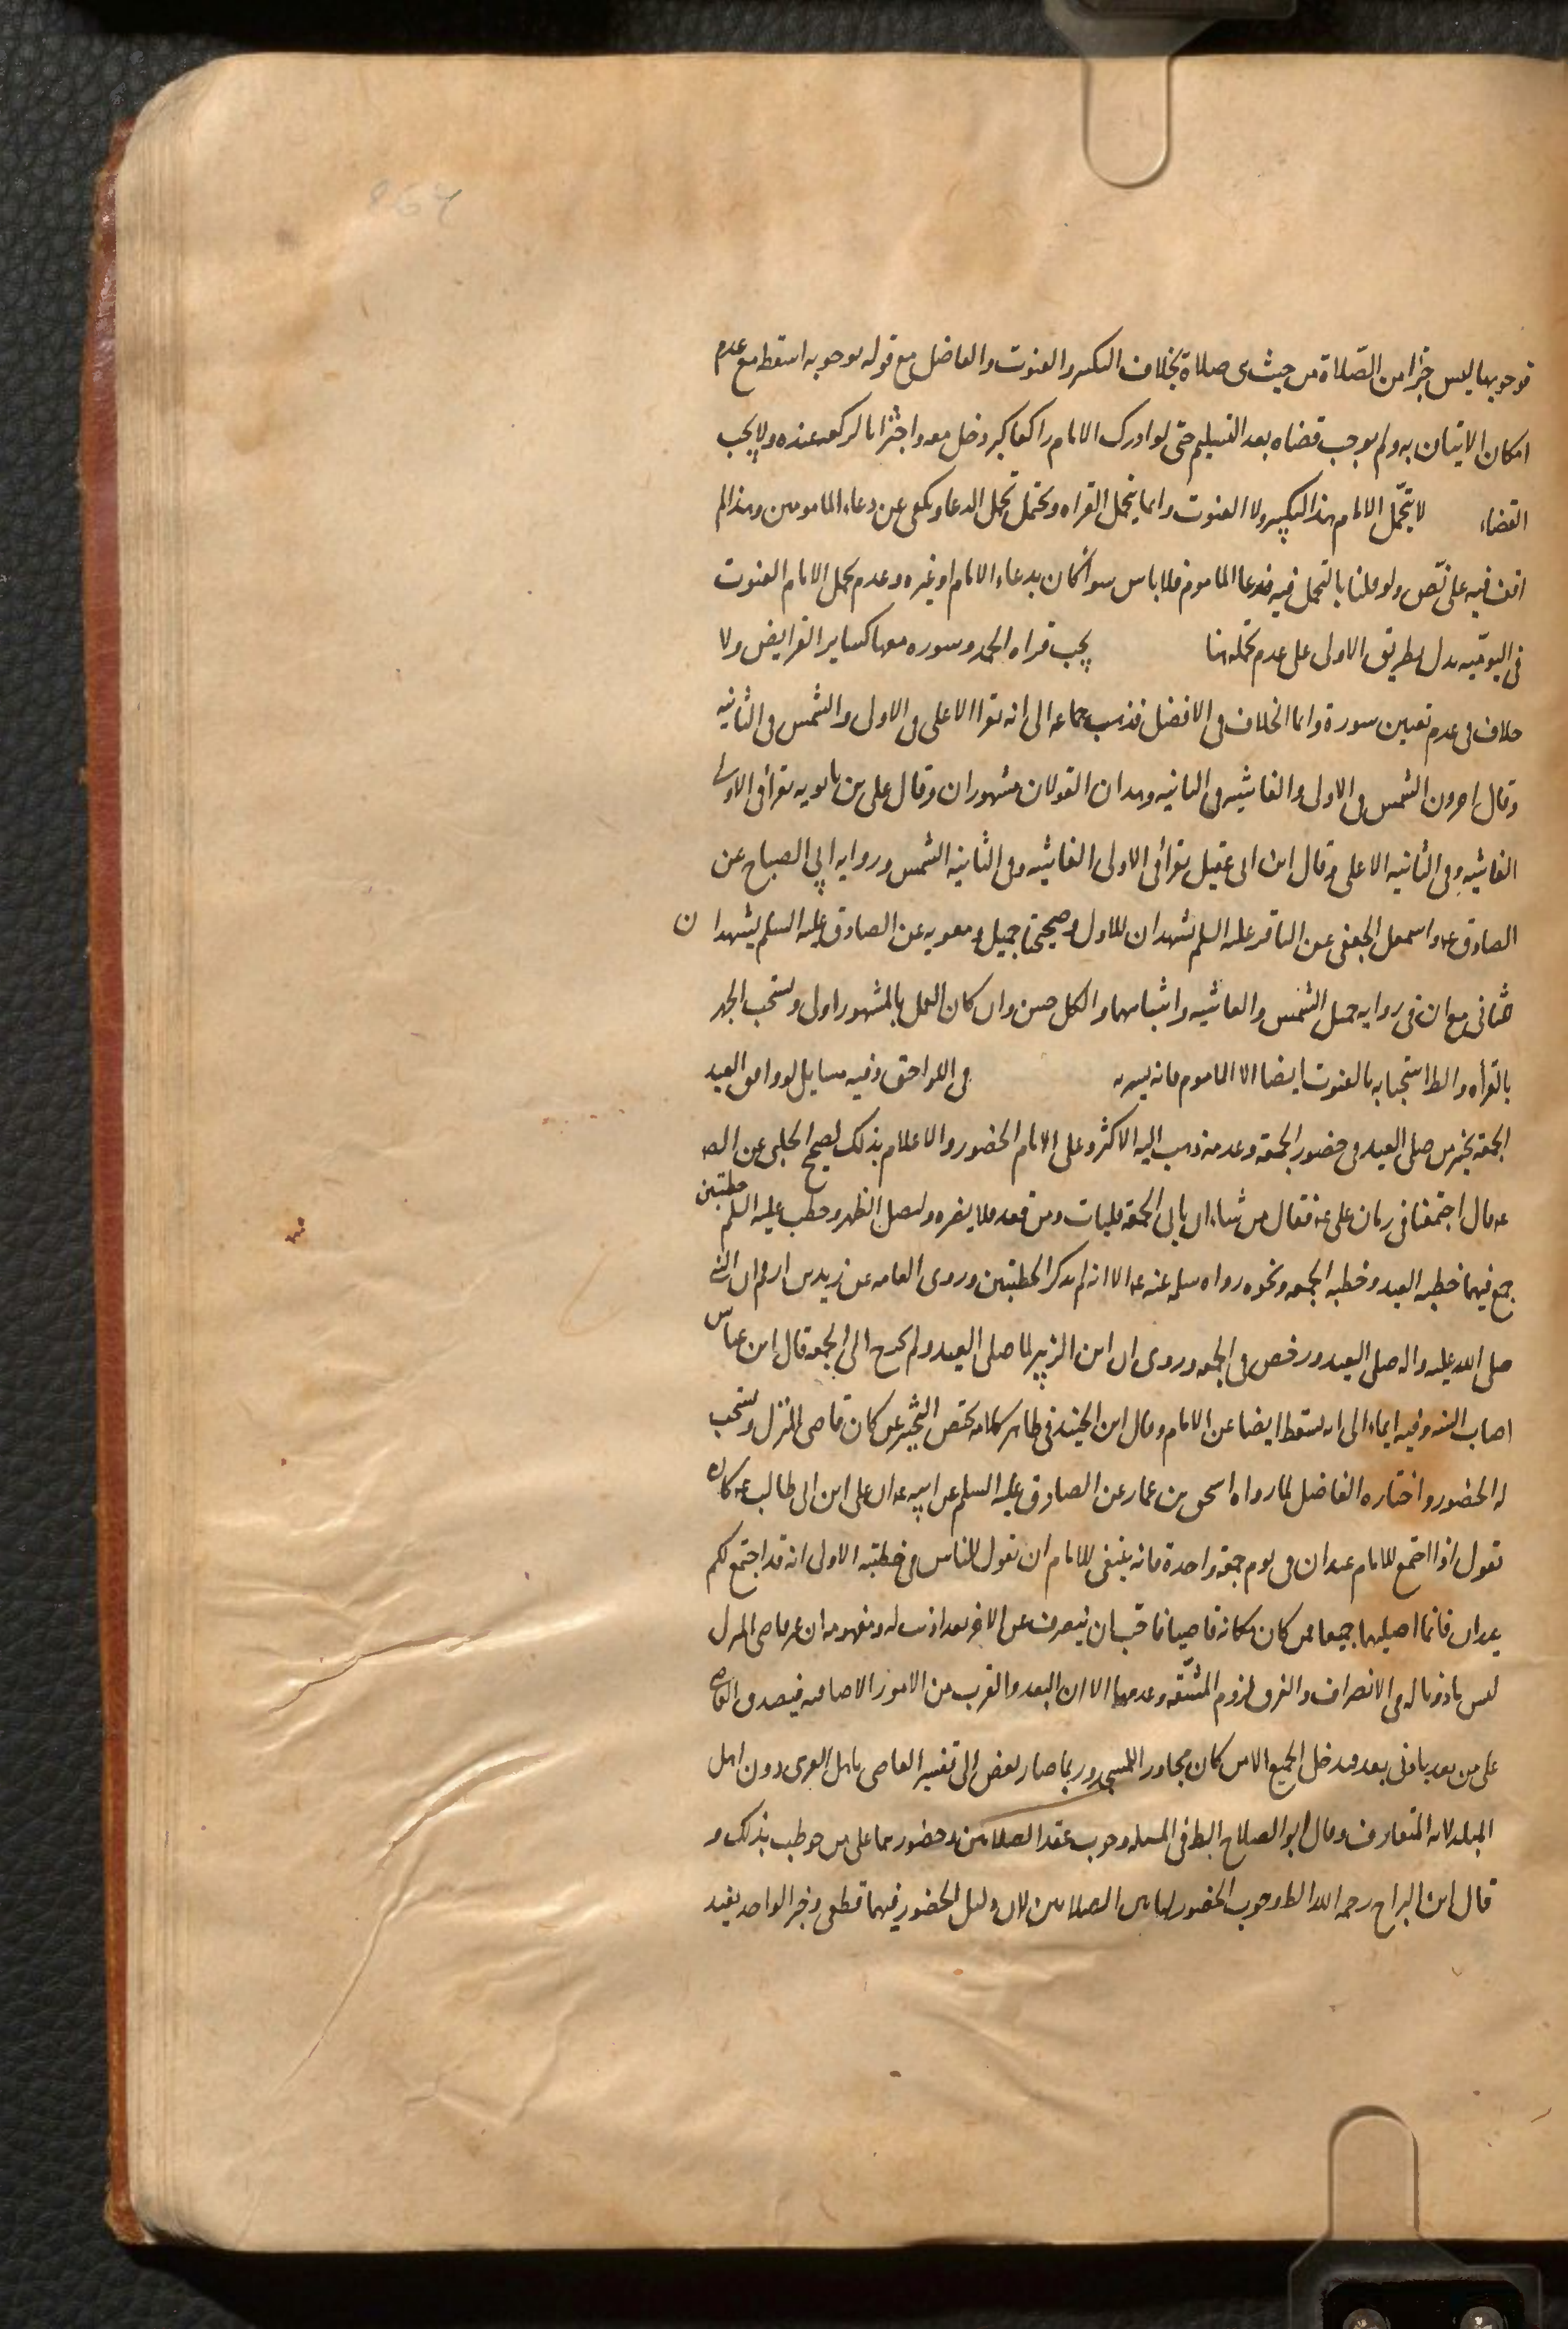 فوجوبها ليس جزءا من الصّلاة من حيث هى صلاة بخلاف التكبير والقنوت والفاضل مع قوله بوجوبه اسقط مع عدم
امكان الاتيان به ولم يوجب قضاه بعد التسليم حتى لو ادرك الامام راكعا كبر ودخل معه واجتزا بالركعه عنده ولا يجب
القضاء لا يتحمّل الامام هذا التكبير ولا القنوت وانما يتحمل القراه ويحتمل تحمل الدعا ويكفى عن دعاء المامومين وهذا لم
اقف فيه على نصّ ولو قلنا بالتحمل فيه فدعا الماموم فلا باس سوا كان بدعاء الامام او غيره وعدم تحمل الامام القنوت
فى اليوميّه يدل بطريق الاولى على عدم تحمله هنا يجب قراه الحمد وسوره معها كساير الفرايض ولا
خلاف فى عدم تعيين سورة وانما الخلاف فى الافضل فذهب جماعه الى انه يقرا الاعلى فى الاولى والشمس فى الثانيه
وقال اخرون الشمس فى الاولى والغاشيه فى الثانيه وهذان القولان مشهوران وقال على بن بابويه يقرأ فى الاولى
الغاشيه وفى الثانيه الاعلى وقال ابن ابى عقيل يقرأ فى الاولى الغاشيه وفى الثانيه الشمس وروايه ابى الصباح عن
الصادق عه واسمعيل الجعفى عن الباقر عليه السلم تشهدان للاول وصحيحتا جميل ومعويه عن الصادق عليه السلم يشهدا ن
للثانى مع ان فى روايه جميل الشمس والغاشيه واشباههما والكل حسن وان كان العمل بالمشهور اولى ويستحب الجهر
بالقرأه والظ استحبابه بالقنوت ايضا الا الماموم فانه يسر به فى اللواحق وفيه مسايل لو وافق العيد
الجمعه تخير من صلى العيد فى حضور الجمعه وعدمه ذهب اليه الاكثر وعلى الامام الحضور والاعلام بذلك لصحيح الحلبى عن الصـ
عه قال اجتمعتا فى زمان على عه فقال من شاء ان ياتى الجمعه فليات ومن قعد فلا يضره وليصل الظهر وخطب عليه السلم خطبتين
جمع فيهما خطبه العيد وخطبه الجمعه ونحوه رواه سلمه عنه عه الا انه لم يذكر الخطبتين وروى العامه عن زيد بن ارقم ان النبى
صلى الله عليه واله صلى العيد ورخص فى الجمعه وروى ان ابن الزبير لما صلى العيد ولم يخرج الى الجمعه قال ابن عباس
اصاب السنه وفيه ايماء الى انه يسقط ايضا عن الامام وقال ابن الجنيد فى ظاهر كلامه يختص التخيير بمن كان قاصى المنزل ويستحب
له الحضور واختاره الفاضل لما رواه اسحق بن عمار عن الصادق عليه السلم عن ابيه عه ان على ابن ابى طالب عه كان
يقول اذا اجتمع للامام عيدان فى يوم جمعه واحدة فانه ينبغى للامام ان يقول للناس فى خطبته الاولى انه قد اجتمع لكم
عيدان فانما اصليهما جميعا فمن كان مكانه قاصيا فاحب ان ينصرف عن الاخر فقد اذنت له ومفهومه ان غير قاصى المنزل
ليس ماذونا له فى الانصراف والفرق لزوم المشقّه وعدمها الا ان البعد والقرب من الامور الاضافيه فيصدق القاصى
على من بعد بادنى بعد فيدخل الجميع الا من كان مجاور المسجد وربما صار بعض الى تفسير القاصى باهل القرى دون اهل
البلد لانه المتعارف وقال ابو الصلاح الظ فى المسله وجوب عقد الصلاتين وحضورهما على من خوطب بذلك و
قال ابن البراج رحمه الله الظ وجوب الحضور لهاتين الصلاتين لان دليل الحضور فيهما قطعى وخبر الواحد يفيد